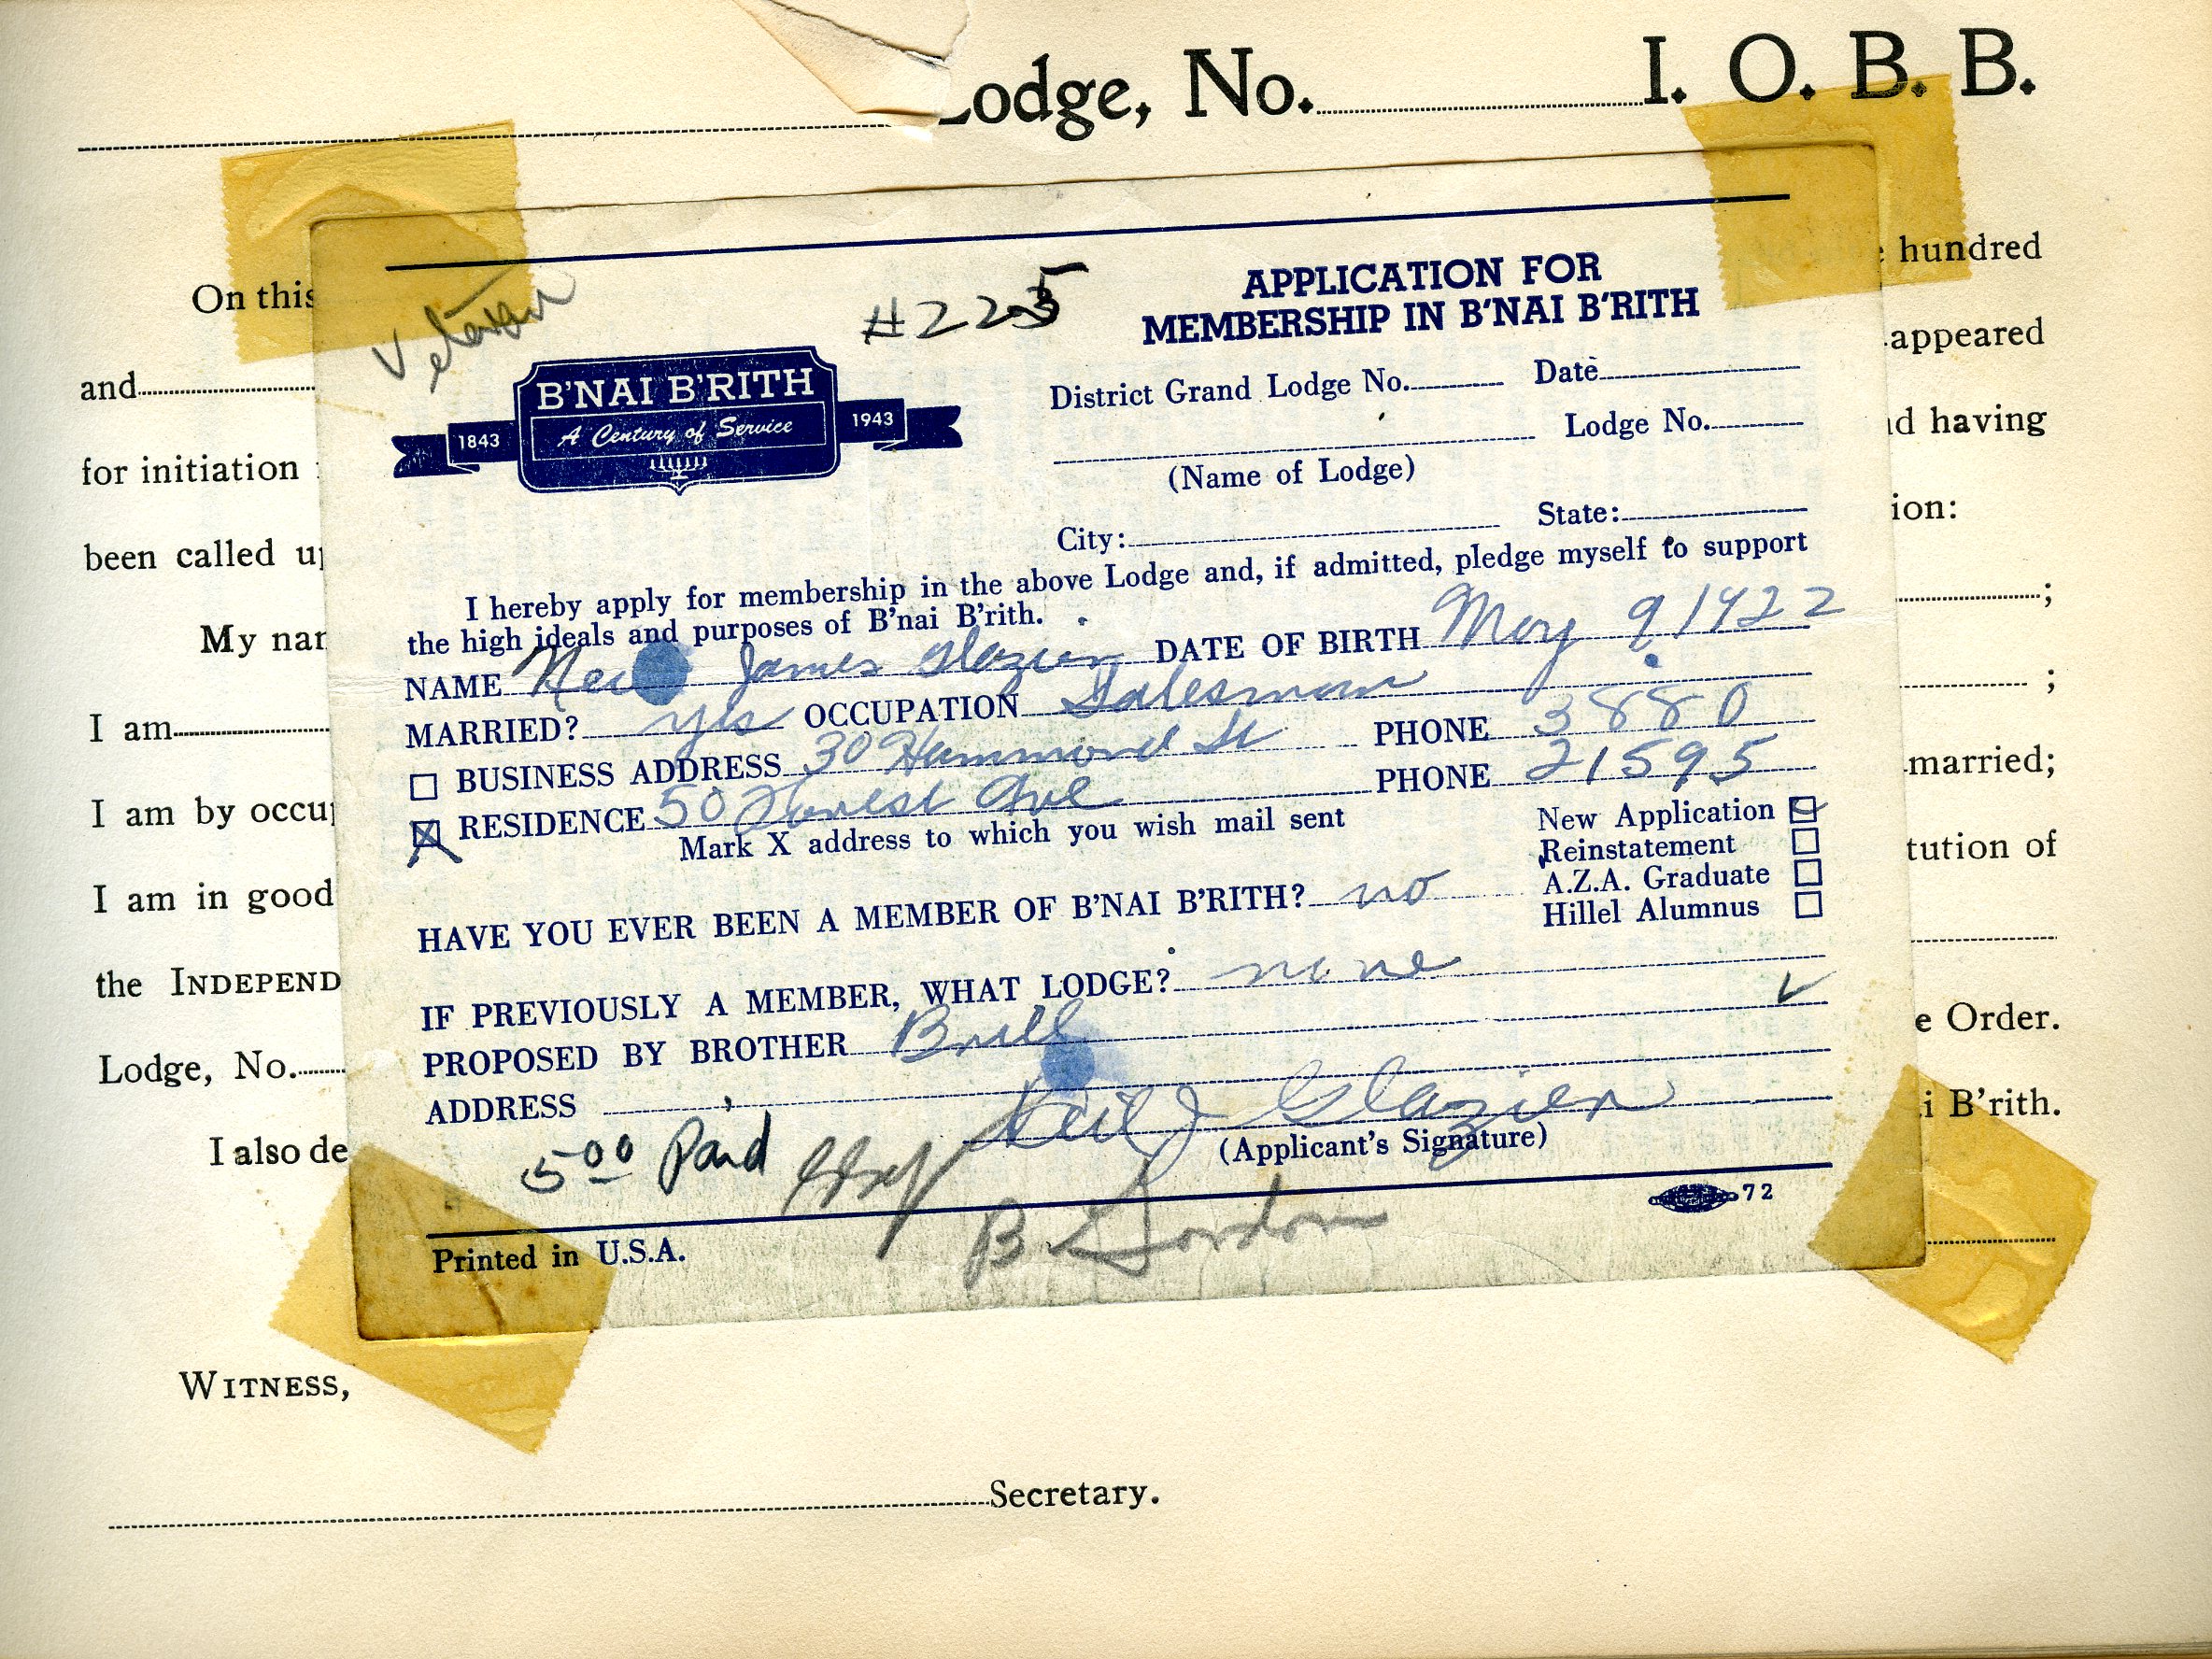 Lodge, No. I. O. B. B.
On this hundred
and appeared
for initiation having
been called ion:
My ;
I am ;
I am by married;
I am in good tution of
the INDEPEND
Lodge, No. e Order.
I also de i B'rith.
WITNESS,
Secretary.
Veteran
#225
APPLICATION FOR
MEMBERSHIP IN B'NAI B'RITH
B'NAI B'RITH
1843 A Century of Service 1943
District Grand Lodge No. Date
Lodge No.
(Name of Lodge)
City: State:
I hereby apply for membership in the above Lodge and, if admitted, pledge myself to support
the high ideals and purposes of B'nai B'rith.
NAME Neil James Glazier DATE OF BIRTH May 9 1922
MARRIED? yes OCCUPATION Salesman
BUSINESS ADDRESS 30 Hammond St PHONE 3880
RESIDENCE 50 Forest Ave PHONE 21595
Mark X address to which you wish mail sent
New Application
Reinstatement
A.Z.A. Graduate
Hillel Alumnus
HAVE YOU EVER BEEN A MEMBER OF B'NAI B'RITH? no
IF PREVIOUSLY A MEMBER, WHAT LODGE? none
PROPOSED BY BROTHER Brill
ADDRESS
Neil J Glazier
(Applicant's Signature)
5.00 Paid
B Gordon
72
Printed in U.S.A.